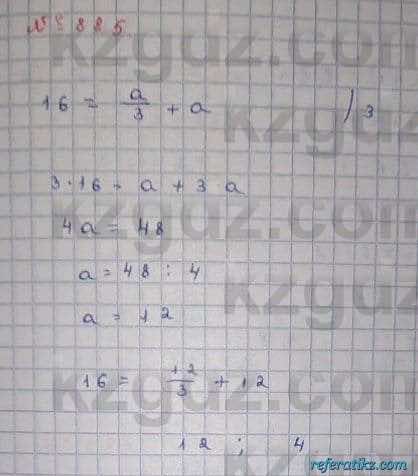 № 885
16 = a/3 + a /3
3·16 = a + 3·a
4a = 48
a = 48 : 4
a = 12
16 = 12/3 + 12
12 ; 4
kzgdz.com
referatikz.com